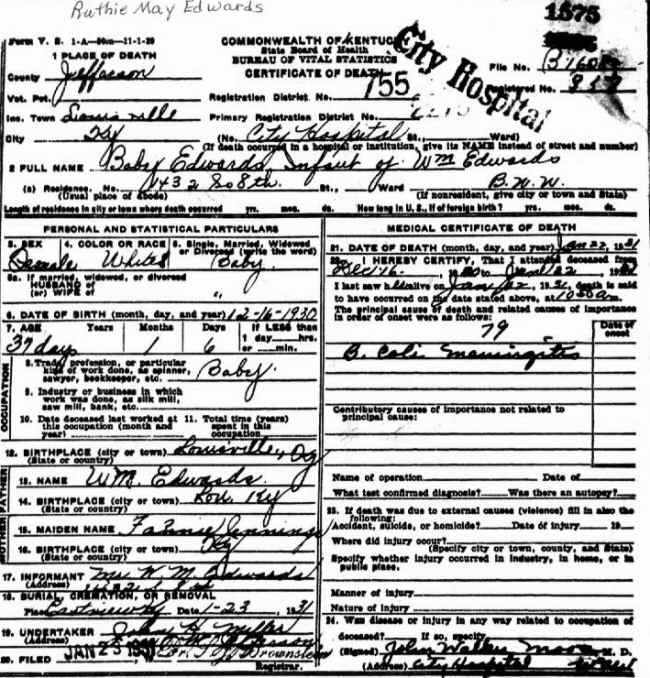 Ruthie May Edwards
1575
Form V. S. 1-A
COMMONWEALTH OF KENTUCKY
State Board of Health
BUREAU OF VITAL STATISTICS
CERTIFICATE OF DEATH
City Hospital
File No.
Registered No.
1 PLACE OF DEATH
County Jefferson
755
Vot. Pct.
Registration District No.
Inc. Town Louisville
Primary Registration District No.
City Ky (No. City Hospital St., Ward)
(If death occurred in a hospital or institution, give its NAME instead of street and number)
2 FULL NAME Baby Edwards Infant of Wm Edwards
(a) Residence. No. 1432 So 8th. St., Ward B. W. W.
(Usual place of abode) (If nonresident, give city or town and State)
Length of residence in city or town where death occurred yrs. mos. ds. How long in U. S., if of foreign birth? yrs. mos. ds.
PERSONAL AND STATISTICAL PARTICULARS
3. SEX 4. COLOR OR RACE 5. Single, Married, Widowed or Divorced (write the word)
Female White Baby
5a. If married, widowed, or divorced
HUSBAND of
(or) WIFE of "
6. DATE OF BIRTH (month, day, and year) 12-16-1930
7. AGE Years Months Days If LESS than
1 day hrs.
or min.
37 day 1 6
OCCUPATION
8. Trade, profession, or particular
kind of work done, as spinner,
sawyer, bookkeeper, etc. Baby
9. Industry or business in which
work was done, as silk mill,
saw mill, bank, etc.
10. Date deceased last worked at this occupation (month and year)
11. Total time (years) spent in this occupation
12. BIRTHPLACE (city or town) Louisville, Ky
(State or country)
FATHER
13. NAME Wm. Edwards
14. BIRTHPLACE (city or town) Lou. Ky
(State or country)
MOTHER
15. MAIDEN NAME Jennings
16. BIRTHPLACE (city or town) Ky
(State or country)
17. INFORMANT Mrs W. M. Edwards
(Address)
18. BURIAL, CREMATION, OR REMOVAL
Place Date 1-23, 1931
19. UNDERTAKER John H. Miller
20. FILED JAN 23 1931
Registrar.
MEDICAL CERTIFICATE OF DEATH
21. DATE OF DEATH (month, day, and year) Jan 22, 1931
22. I HEREBY CERTIFY, That I attended deceased from
Dec 16, 1930 to Jan 22, 1931
I last saw h alive on Jan 22, 1931, death is said
to have occurred on the date stated above, at 10 50 a m.
The principal cause of death and related causes of importance
in order of onset were as follows:
Date of onset
79
B. Coli Meningitis
Contributory causes of importance not related to
principal cause:
Name of operation Date of
What test confirmed diagnosis? Was there an autopsy?
23. If death was due to external causes (violence) fill in also the following:
Accident, suicide, or homicide? Date of injury 19
Where did injury occur?
(Specify city or town, county, and State)
Specify whether injury occurred in industry, in home, or in
public place.
Manner of injury
Nature of injury
24. Was disease or injury in any way related to occupation of
deceased? If so, specify
(Signed) John Walker Moore M. D.
(Address) City Hospital